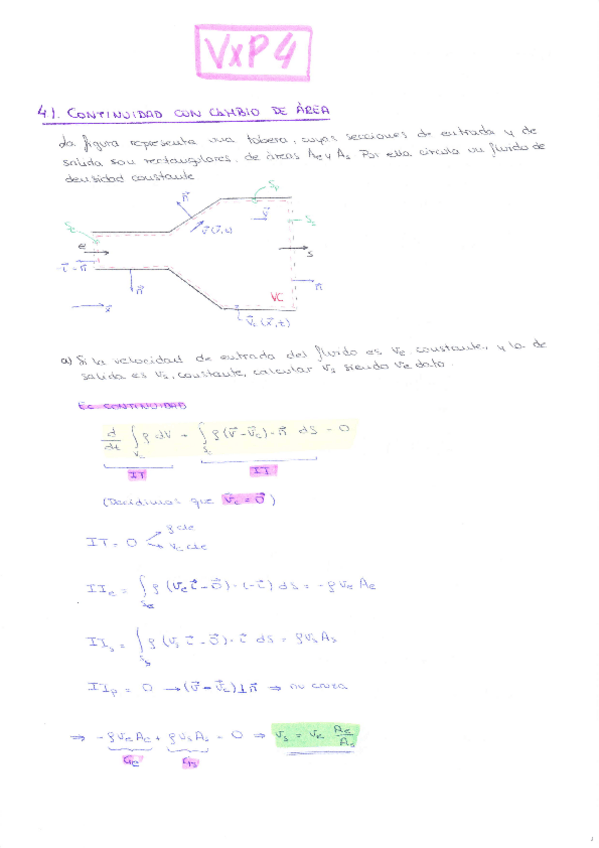 VxP4
41. CONTINUIDAD CON CAMBIO DE ÁREA
La figura representa una tobera, cuyas secciones de entrada y de
salida son rectangulares, de áreas Ae y As. Por ella circula un fluido de
densidad constante
n⃗ Sp
Se v⃗ Ss
v⃗(x⃗,t)
e s
-i⃗ = n⃗
n⃗ VC n⃗
x⃗ v⃗s(x⃗,t)
a) Si la velocidad de entrada del fluido es Ve, constante, y la de
salida es Vs, constante, calcular Vs siendo Ve dato.
EC CONTINUIDAD
d/dt ∫Vc ρ dV + ∫Sc ρ(v⃗-v⃗c)·n⃗ dS = 0
IT IT
(Decidimos que v⃗c = 0⃗)
IT = 0 ρ cte
Vc cte
IIe = ∫Se ρ (ve i⃗ - 0⃗)·(-i⃗) dS = -ρ ve Ae
IIs = ∫Ss ρ (vs i⃗ - 0⃗)·i⃗ dS = ρ vs As
IIp = 0 → (v⃗-v⃗c)⊥n⃗ ⇒ no cruza
⇒ -ρ ve Ae + ρ vs As = 0 ⇒ vs = ve Ae/As
Ge Gs